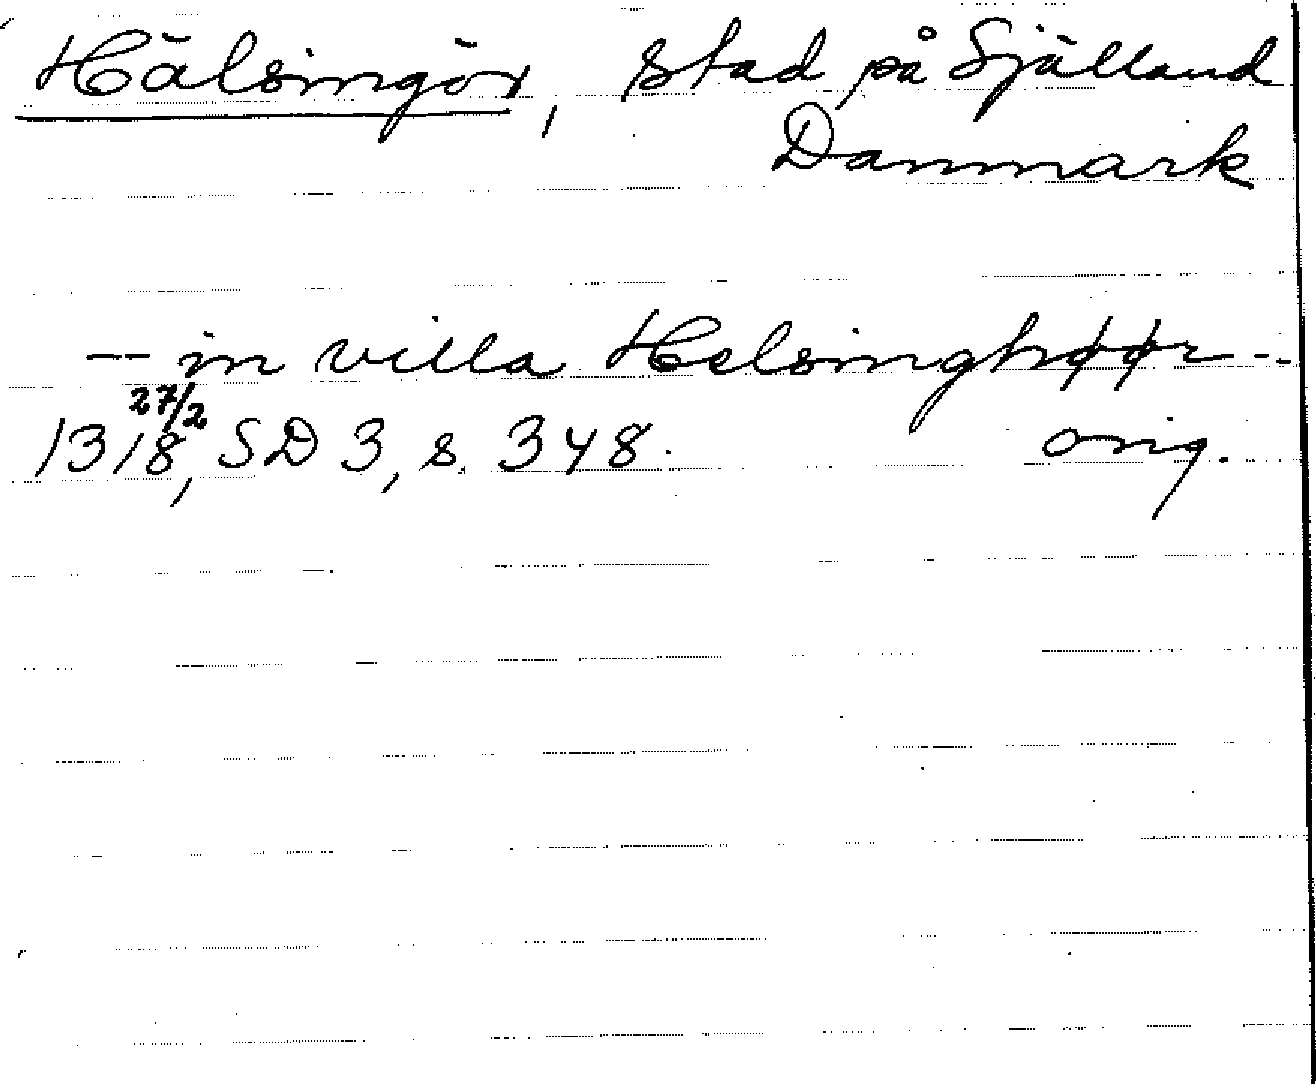 Hälsingör, stad på Själland
Danmark
-- in villa Helsinghøør --
27/2
1318, SD 3, s. 348. orig.